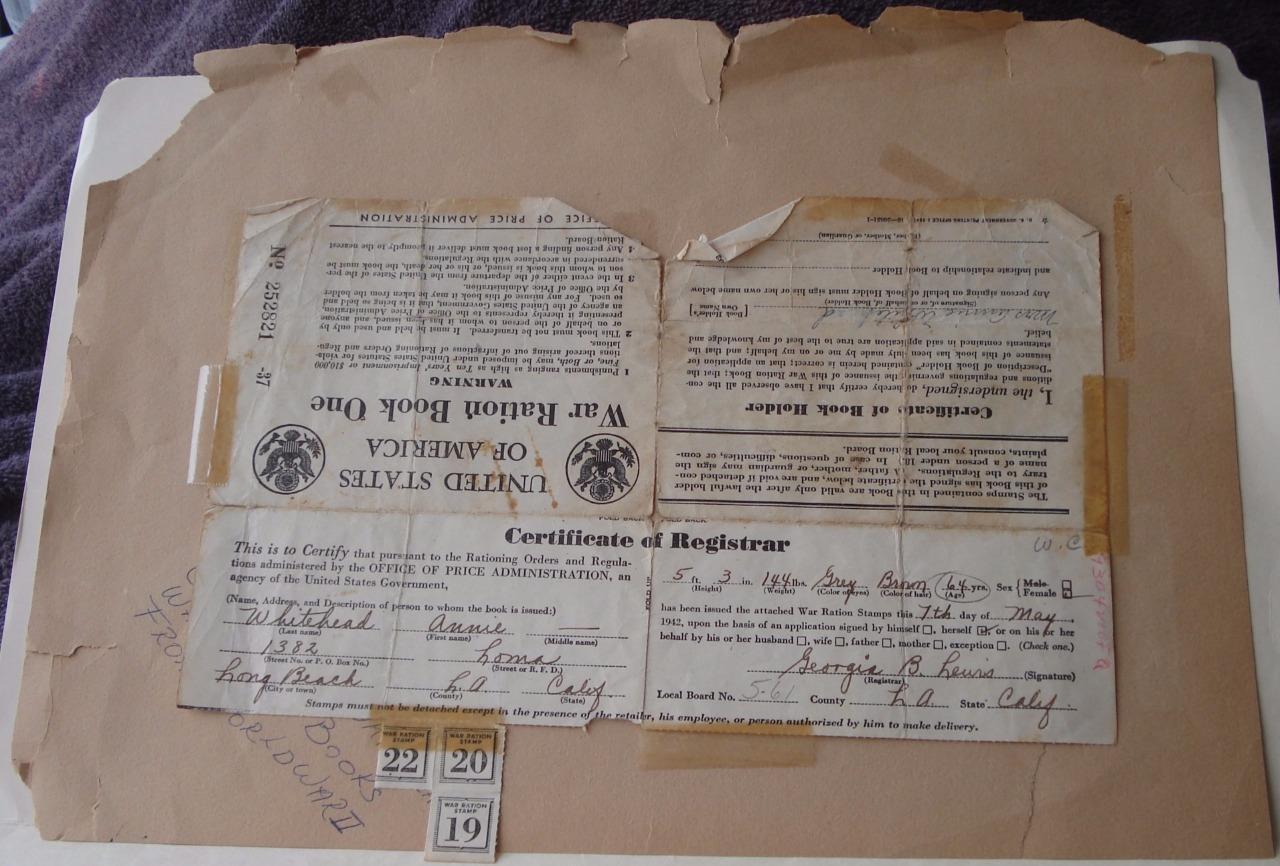 UNITED STATES
OF AMERICA
War Ration Book One
WARNING
1 Punishments ranging as high as Ten Years' Imprisonment or $10,000
Fine, or Both, may be imposed under United States Statutes for viola-
tions thereof arising out of infractions of Rationing Orders and Regu-
lations.
2 This book must not be transferred. It must be held and used only by
or on behalf of the person to whom it has been issued, and anyone
presenting it thereby represents to the Office of Price Administration,
an agency of the United States Government, that it is being so held and
so used. For any misuse of this book it may be taken from the holder
by the Office of Price Administration.
3 In the event either of the departure from the United States of the per-
son to whom this book is issued, or his or her death, the book must be
surrendered in accordance with the Regulations.
4 Any person finding a lost book must deliver it promptly to the nearest
Ration Board.
OFFICE OF PRICE ADMINISTRATION
No. 252821 -37
The Stamps contained in this Book are valid only after the lawful holder
of this Book has signed the certificate below, and are void if detached con-
trary to the Regulations. (A father, mother, or guardian may sign the
name of a person under 18.) In case of questions, difficulties, or com-
plaints, consult your local Ration Board.
Certificate of Book Holder
I, the undersigned, do hereby certify that I have observed all the con-
ditions and regulations governing the issuance of this War Ration Book; that the
"Description of Book Holder" contained herein is correct; that an application for
issuance of this book has been duly made by me or on my behalf; and that the
statements contained in said application are true to the best of my knowledge and
belief.
Mrs Annie Whitehead
[Book Holder's Own Name]
(Signature of, or on behalf of, Book Holder)
Any person signing on behalf of Book Holder must sign his or her own name below
and indicate relationship to Book Holder
(Father, Mother, or Guardian)
U. S. GOVERNMENT PRINTING OFFICE
FOLD BACK FOLD BACK
Certificate of Registrar
W. C
This is to Certify that pursuant to the Rationing Orders and Regula-
tions administered by the OFFICE OF PRICE ADMINISTRATION, an
agency of the United States Government,
(Name, Address, and Description of person to whom the book is issued:)
Whitehead Annie —
(Last name) (First name) (Middle name)
1382 Loma
(Street No. or P. O. Box No.) (Street or R. F. D.)
Long Beach L. A Calif.
(City or town) (County) (State)
5 ft. 3 in. 144 lbs. Grey Brown 64 yrs. Sex { Male Female
(Height) (Weight) (Color of eyes) (Color of hair) (Age)
has been issued the attached War Ration Stamps this 7th day of May
1942, upon the basis of an application signed by himself □, herself ☑, or on his or her
behalf by his or her husband □, wife □, father □, mother □, exception □. (Check one.)
Georgia B. Lewis (Signature)
(Registrar)
Local Board No. 5-61 County L. A. State Calif.
Stamps must not be detached except in the presence of the retailer, his employee, or person authorized by him to make delivery.
WAR RATION
STAMP
22
WAR RATION
STAMP
20
WAR RATION
STAMP
19
FROM
BOOKS
WORLD WAR II